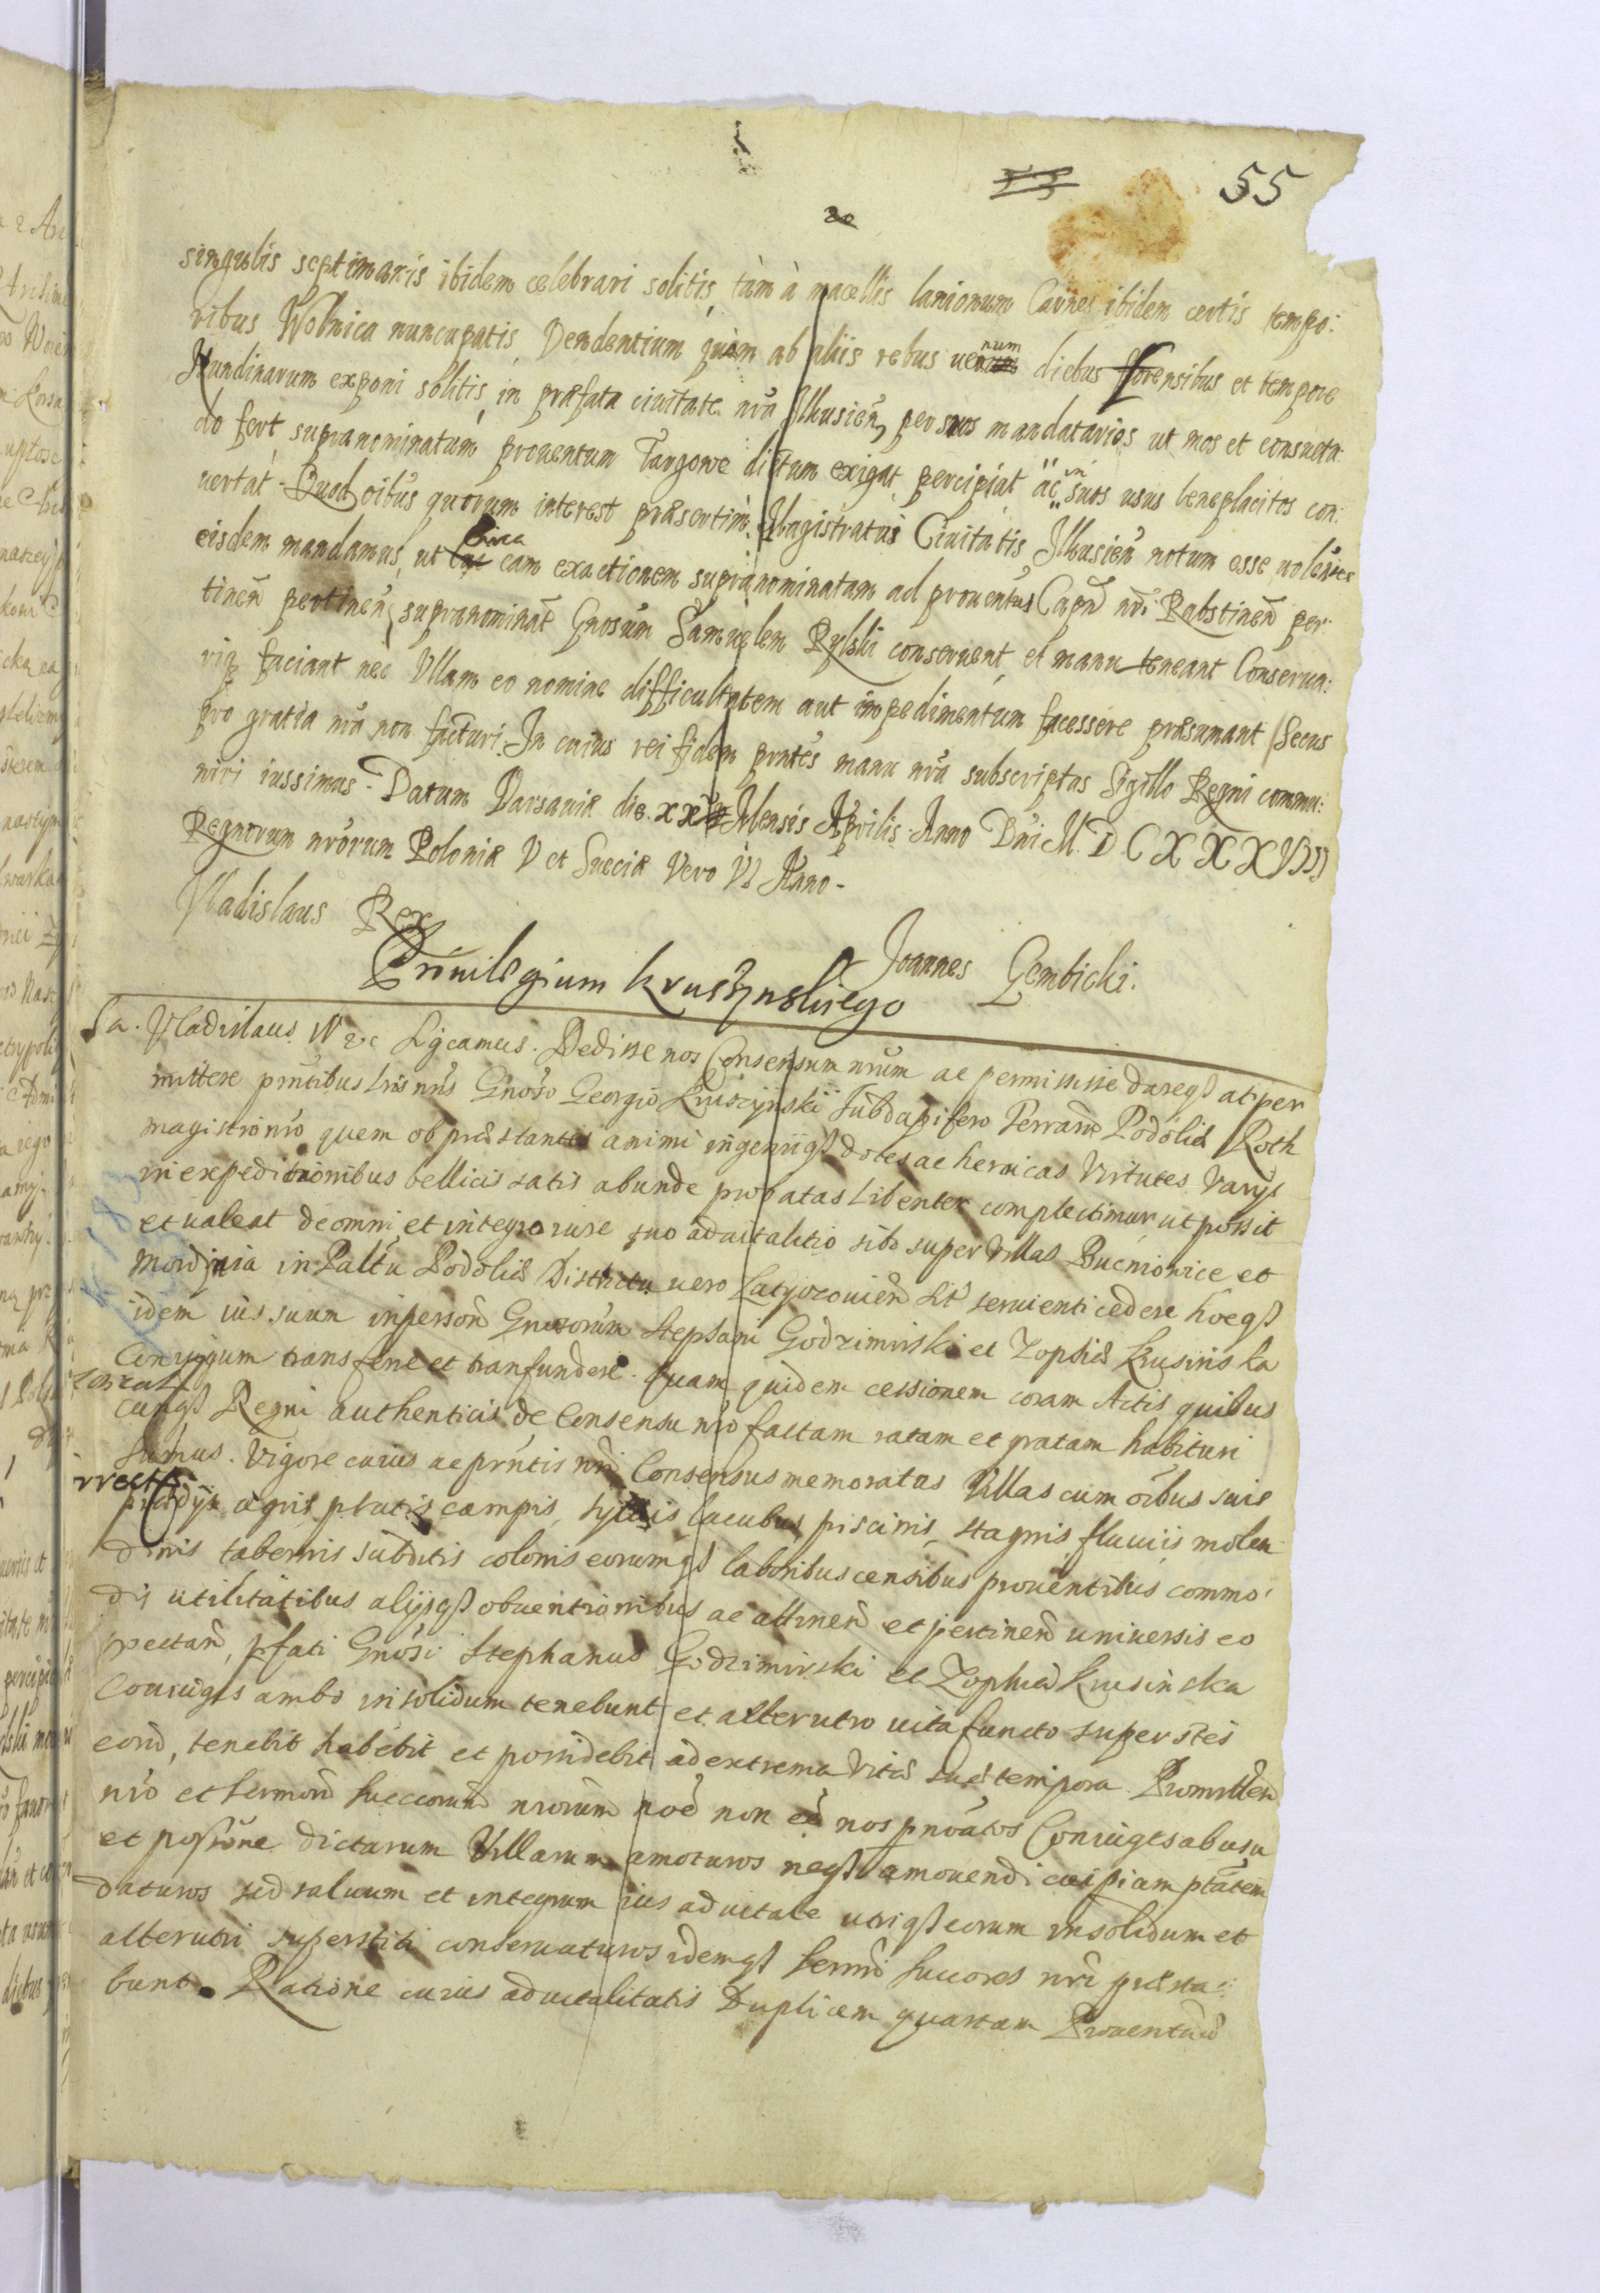 55
singulis septimanis ibidem celebrari solitis, tàm à macellis lanionum Carnes ibidem certis tempo:
ribus Wolnica nuncupatis, Vendentium, quàm ab aliis rebus uenum diebus forensibus et tempore
Nundinarum exponi solitis, in præfata ciuitate nrã Ilkusien, per suos mandatarios ut mos et consueta:
do fert supranominatum prouentum Targowe dictum exigat, percipiat ac in suos usus beneplacitos con:
uertat. Quod oibus quorum interest præsertim Magistratui Ciuitatis Ilkusien notum esse uolentes
eisdem mandamus, ut circa eam exactionem supranominatam ad prouentus Capn nri Rabstinen per:
tinen pertinen, supranominat Gnosum Samuelem Rylski conseruent, et manu teneant Conserua:
riq faciant nec Vllam eo nomine difficultatem aut impedimentum facessere præsumant Secus
pro gratia nrã non facturi. In cuius rei fidem pntes manu nrã subscriptas Sigillo Regni commu:
niri iussimus. Datum Varsauiæ die. XX Mensis Aprilis. Anno Dni M. D C X X X VIII
Regnorum nrorum Poloniæ V et Sueciæ Vero VI Anno.
Vladislaus Rex
Joannes Gembicki.
Priuilegium Kruszynskiego
Vladislaus IV &c Sigcamus. Dedisse nos Consensum nrum ac permisisse dareq at per
mittere pntibus lris nris Gnoso Georgio Kruszynskii Subdapifero Terrarũ Podoliæ Roth
magistro nro quem ob præstantes animi ingeniiq dotes ac heroicas Virtutes Varijs
in expeditionibus bellicis satis abunde probatas Libenter complectimur ut possit
et ualeat de omni et integro iure suo aduitalitio sibi super Villas Bucniowice et
in Paltu Podoliæ Districtu uero Latyczouien Sit seruienti cedere hocq
idem ius suum in person Gnosorum Stephani Godzimirski et Zophiæ Krusinska
Coniugum transferre et tranfundere. Quam quidem cessionem coram Actis quibus
cunq Regni authenticis de Consensu nro factam ratam et gratam habituri
sumus. Vigore cuius ac pntis nri Consensus memoratas Villas cum oibus suis
prædijs agris pratis campis, syluis lacubus piscinis, stagnis fluuiis, molen
dinis tabernis subditis colonis eorumq laboribus censibus prouentibus commo:
dis utilitatibus alijsq obuentionibus ac attinen et pertinen uniuersis eo
spectan, pfati Gnosi Stephanus Godzimirski et Zophia Krusinska
Coniuges ambo in solidum tenebunt et alterutro uita functo superstes
eorũ, tenebit habebit et possidebit ad extrema Vitæ suæ tempora. Promitten
nro et Sermorũ Succorum nrorum noe non eẽ nos pnoatos Coniuges ab usu
et possiõne dictarum Villarum amoturos neq amouendi cuipiam ptatem
daturos sed saluum et integrum ius aduitale utriq eorum in solidum et
alterutri superstiti conseruaturos idemq Sermi Succores nri præsta:
bunt. Ratione cuius aduitalitatis Duplicem quartam Prouentuũ